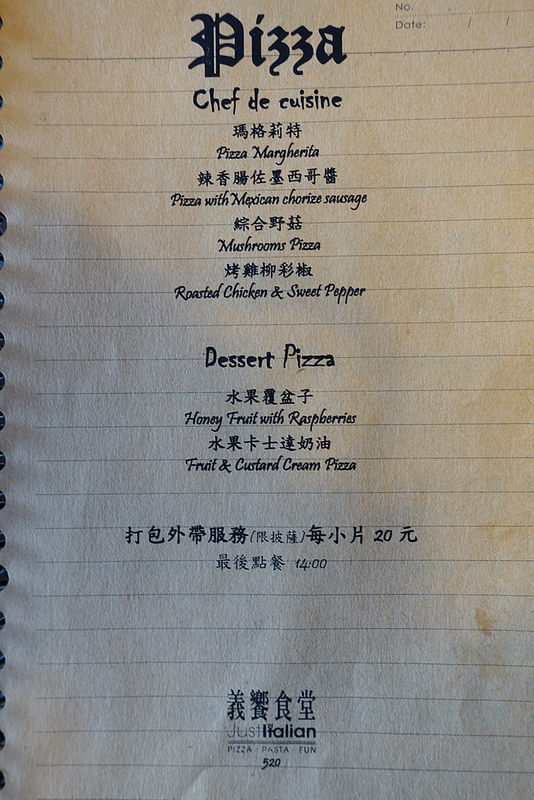 No.
Date: / /
Pizza
Chef de cuisine
瑪格莉特
Pizza Margherita
辣香腸佐墨西哥醬
Pizza with Mexican chorize sausage
綜合野菇
Mushrooms Pizza
烤雞柳彩椒
Roasted Chicken & Sweet Pepper
Dessert Pizza
水果覆盆子
Honey Fruit with Raspberries
水果卡士達奶油
Fruit & Custard Cream Pizza
打包外帶服務(限披薩)每小片 20 元
最後點餐 14:00
義饗食堂
JustItalian
PIZZA · PASTA · FUN
520